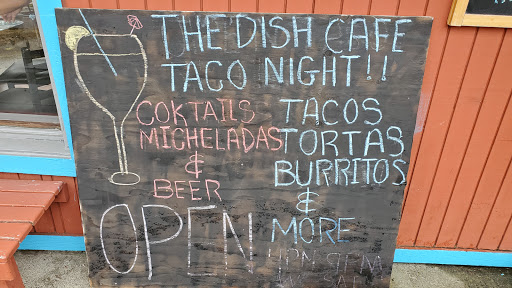 THE DISH CAFE
TACO NIGHT!!
COKTAILS
MICHELADAS
&
BEER
TACOS
TORTAS
BURRITOS
&
MORE
OPEN